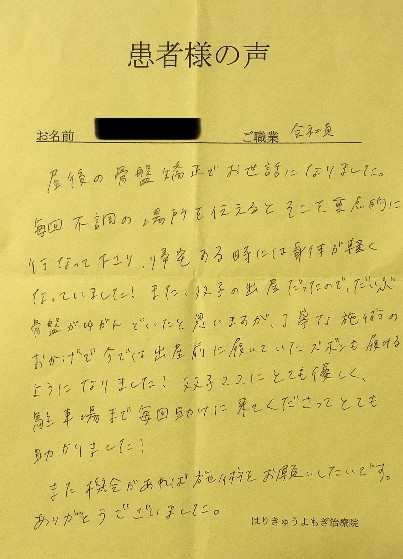 患者様の声
お名前
ご職業 会社員
産後の骨盤矯正でお世話になりました。
毎回不調の場所を伝えるとそこを重点的に
行なって下さり、帰宅する時には身体が軽く
なっていました！また、双子の出産だったので、だいぶ
骨盤がゆがんでいたと思いますが、丁寧な施術の
おかげで今では出産前に履いていたズボンも履ける
ようになりました！双子ママにとても優しく、
駐車場まで毎回助けに来てくださってとても
助かりました！
また機会があれば施術をお願いしたいです。
ありがとうございました。
はりきゅうよもぎ治療院